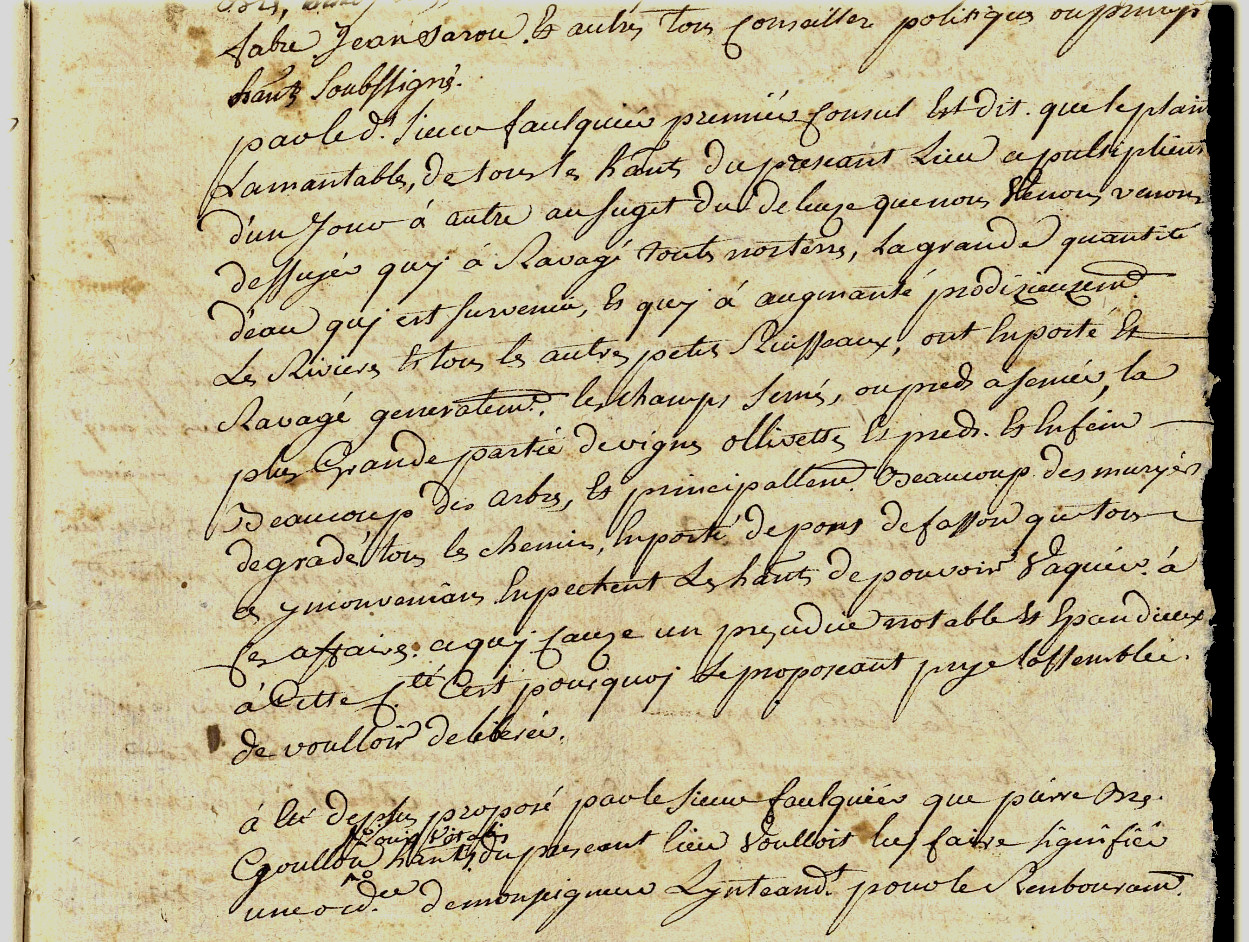 fabre Jean sarou. Et autres tous Conseiller politiques ou princip
hants Soubssignés.
par le d. Sieur faulquiér premiér Consul Est dit. que le plain
Lamantables, de tous les hants du preseant Lieu ce
d'un Jour á autre au suget du deluge que nous venons
dessuyér quy á Ravagé touts nos terres, La grande quantité
d'eau quy est survenue, Et quy á augmanté prodizieuzemt.
Les Rivieres Et tous les autres petis Ruisseaux, ont Enporté Et
Ravagé generalemt. les champs semés, ou preds a semér, la
plus Grande partie de vignes ollivettes Et preds. Et Enfein
Beaucoup des arbres, Et principallemt. Beaucoup des
degradé tous les chemins, Enporté de pons de fasson que tous
ces ynconveniáns Enpechent Les hants de pouvoir Vaquér. á
ses affaires. ce quy Cauze un prejudice notable Et
á Cette Cté C'est pourquoy Le proposeant prye l'assemblée.
de voulloir deliberér.
á Eté de plus proposé par le sieur faulquiér que piérre
Louis Vitalis
Egoullon hants. du preseant lieu Voulloit luy faire signifiér
une ordce. de monseigneur Lynteandt. pour le Renbouramt.